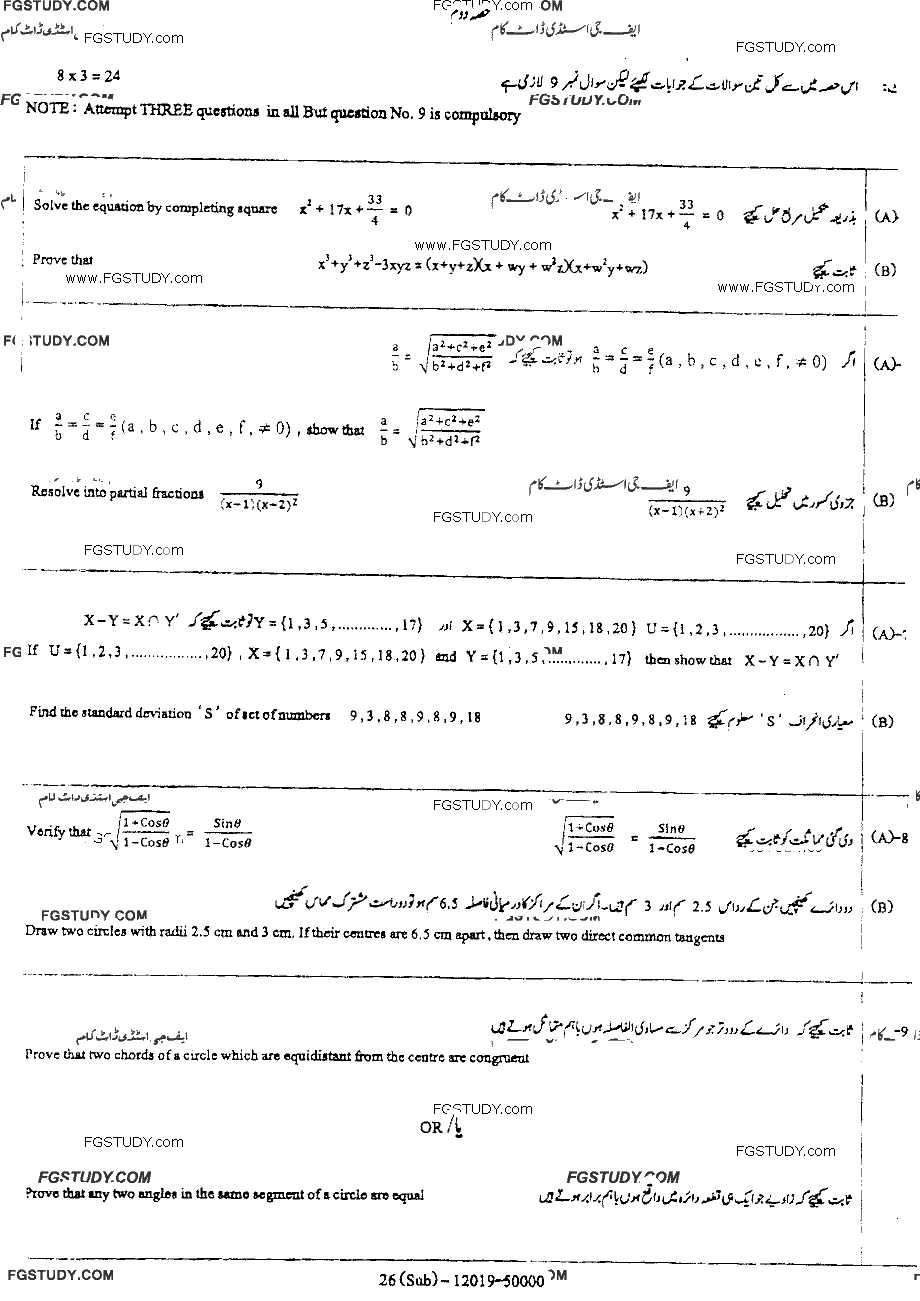 FGSTUDY.COM FGSTUDY.com OM
حصہ دوم
اسٹڈی ڈاٹ کام FGSTUDY.com ایف جی اسٹڈی ڈاٹ کام FGSTUDY.com
8 x 3 = 24 اس حصہ میں سے کل تین سوالات کے جوابات لکھیئے لیکن سوال نمبر 9 لازمی ہے
FGSTUDY.COM
NOTE : Attempt THREE questions in all But question No. 9 is compulsory
ایف جی اسٹڈی ڈاٹ کام
Solve the equation by completing square x² + 17x + 33/4 = 0 x² + 17x + 33/4 = 0 بذریعہ تکمیل مربع حل کیجئے (A)
www.FGSTUDY.com
Prove that x³+y³+z³-3xyz = (x+y+z)(x + wy + w²z)(x+w²y+wz) ثابت کیجئے (B)
www.FGSTUDY.com www.FGSTUDY.com
STUDY.COM DY.COM
اگر a/b = c/d = e/f (a , b , c , d , e , f , ≠ 0) ہو تو ثابت کیجئے کہ a/b = √((a²+c²+e²)/(b²+d²+f²)) (A)-
If a/b = c/d = e/f (a , b , c , d , e , f , ≠ 0) , show that a/b = √((a²+c²+e²)/(b²+d²+f²))
ایف جی اسٹڈی ڈاٹ کام
Resolve into partial fractions 9/((x−1)(x+2)²) 9/((x−1)(x+2)²) جزوی کسور میں تحلیل کیجئے (B)
FGSTUDY.com
FGSTUDY.com FGSTUDY.com
اگر U = {1,2,3,..................,20} X = {1,3,7,9,15,18,20} اور Y = {1,3,5,.............,17} تو ثابت کیجئے کہ X − Y = X ∩ Y′ (A)-
FG If U = {1,2,3,.................,20} , X = {1,3,7,9,15,18,20} and Y = {1,3,5,.............,17} then show that X − Y = X ∩ Y′
Find the standard deviation 'S' of set of numbers 9,3,8,8,9,8,9,18 9,3,8,8,9,8,9,18 معیاری انحراف 'S' معلوم کیجئے (B)
ایف جی اسٹڈی ڈاٹ کام FGSTUDY.com
Verify that √((1+Cosθ)/(1−Cosθ)) = Sinθ/(1−Cosθ) √((1+Cosθ)/(1−Cosθ)) = Sinθ/(1−Cosθ) دی گئی مماثلت کو ثابت کیجئے (A)-8
دو دائرے کھینچیں جن کے رداس 2.5 سم اور 3 سم ہیں۔ اگر ان کے مراکز کا درمیانی فاصلہ 6.5 سم ہو تو دو راست مشترک مماس کھینچیں (B)
FGSTUDY COM
Draw two circles with radii 2.5 cm and 3 cm. If their centres are 6.5 cm apart , then draw two direct common tangents
ثابت کیجئے کہ دائرے کے دو وتر جو مرکز سے مساوی الفاصلہ ہوں باہم متماثل ہوتے ہیں -9
ایف جی اسٹڈی ڈاٹ کام
Prove that two chords of a circle which are equidistant from the centre are congruent
FGSTUDY.com
OR / یا
FGSTUDY.com FGSTUDY.com
FGSTUDY.COM FGSTUDY.COM
Prove that any two angles in the same segment of a circle are equal ثابت کیجئے کہ زاویے جو ایک ہی قطعہ دائرہ میں واقع ہوں باہم برابر ہوتے ہیں
FGSTUDY.COM 26 (Sub) - 12019-50000 OM